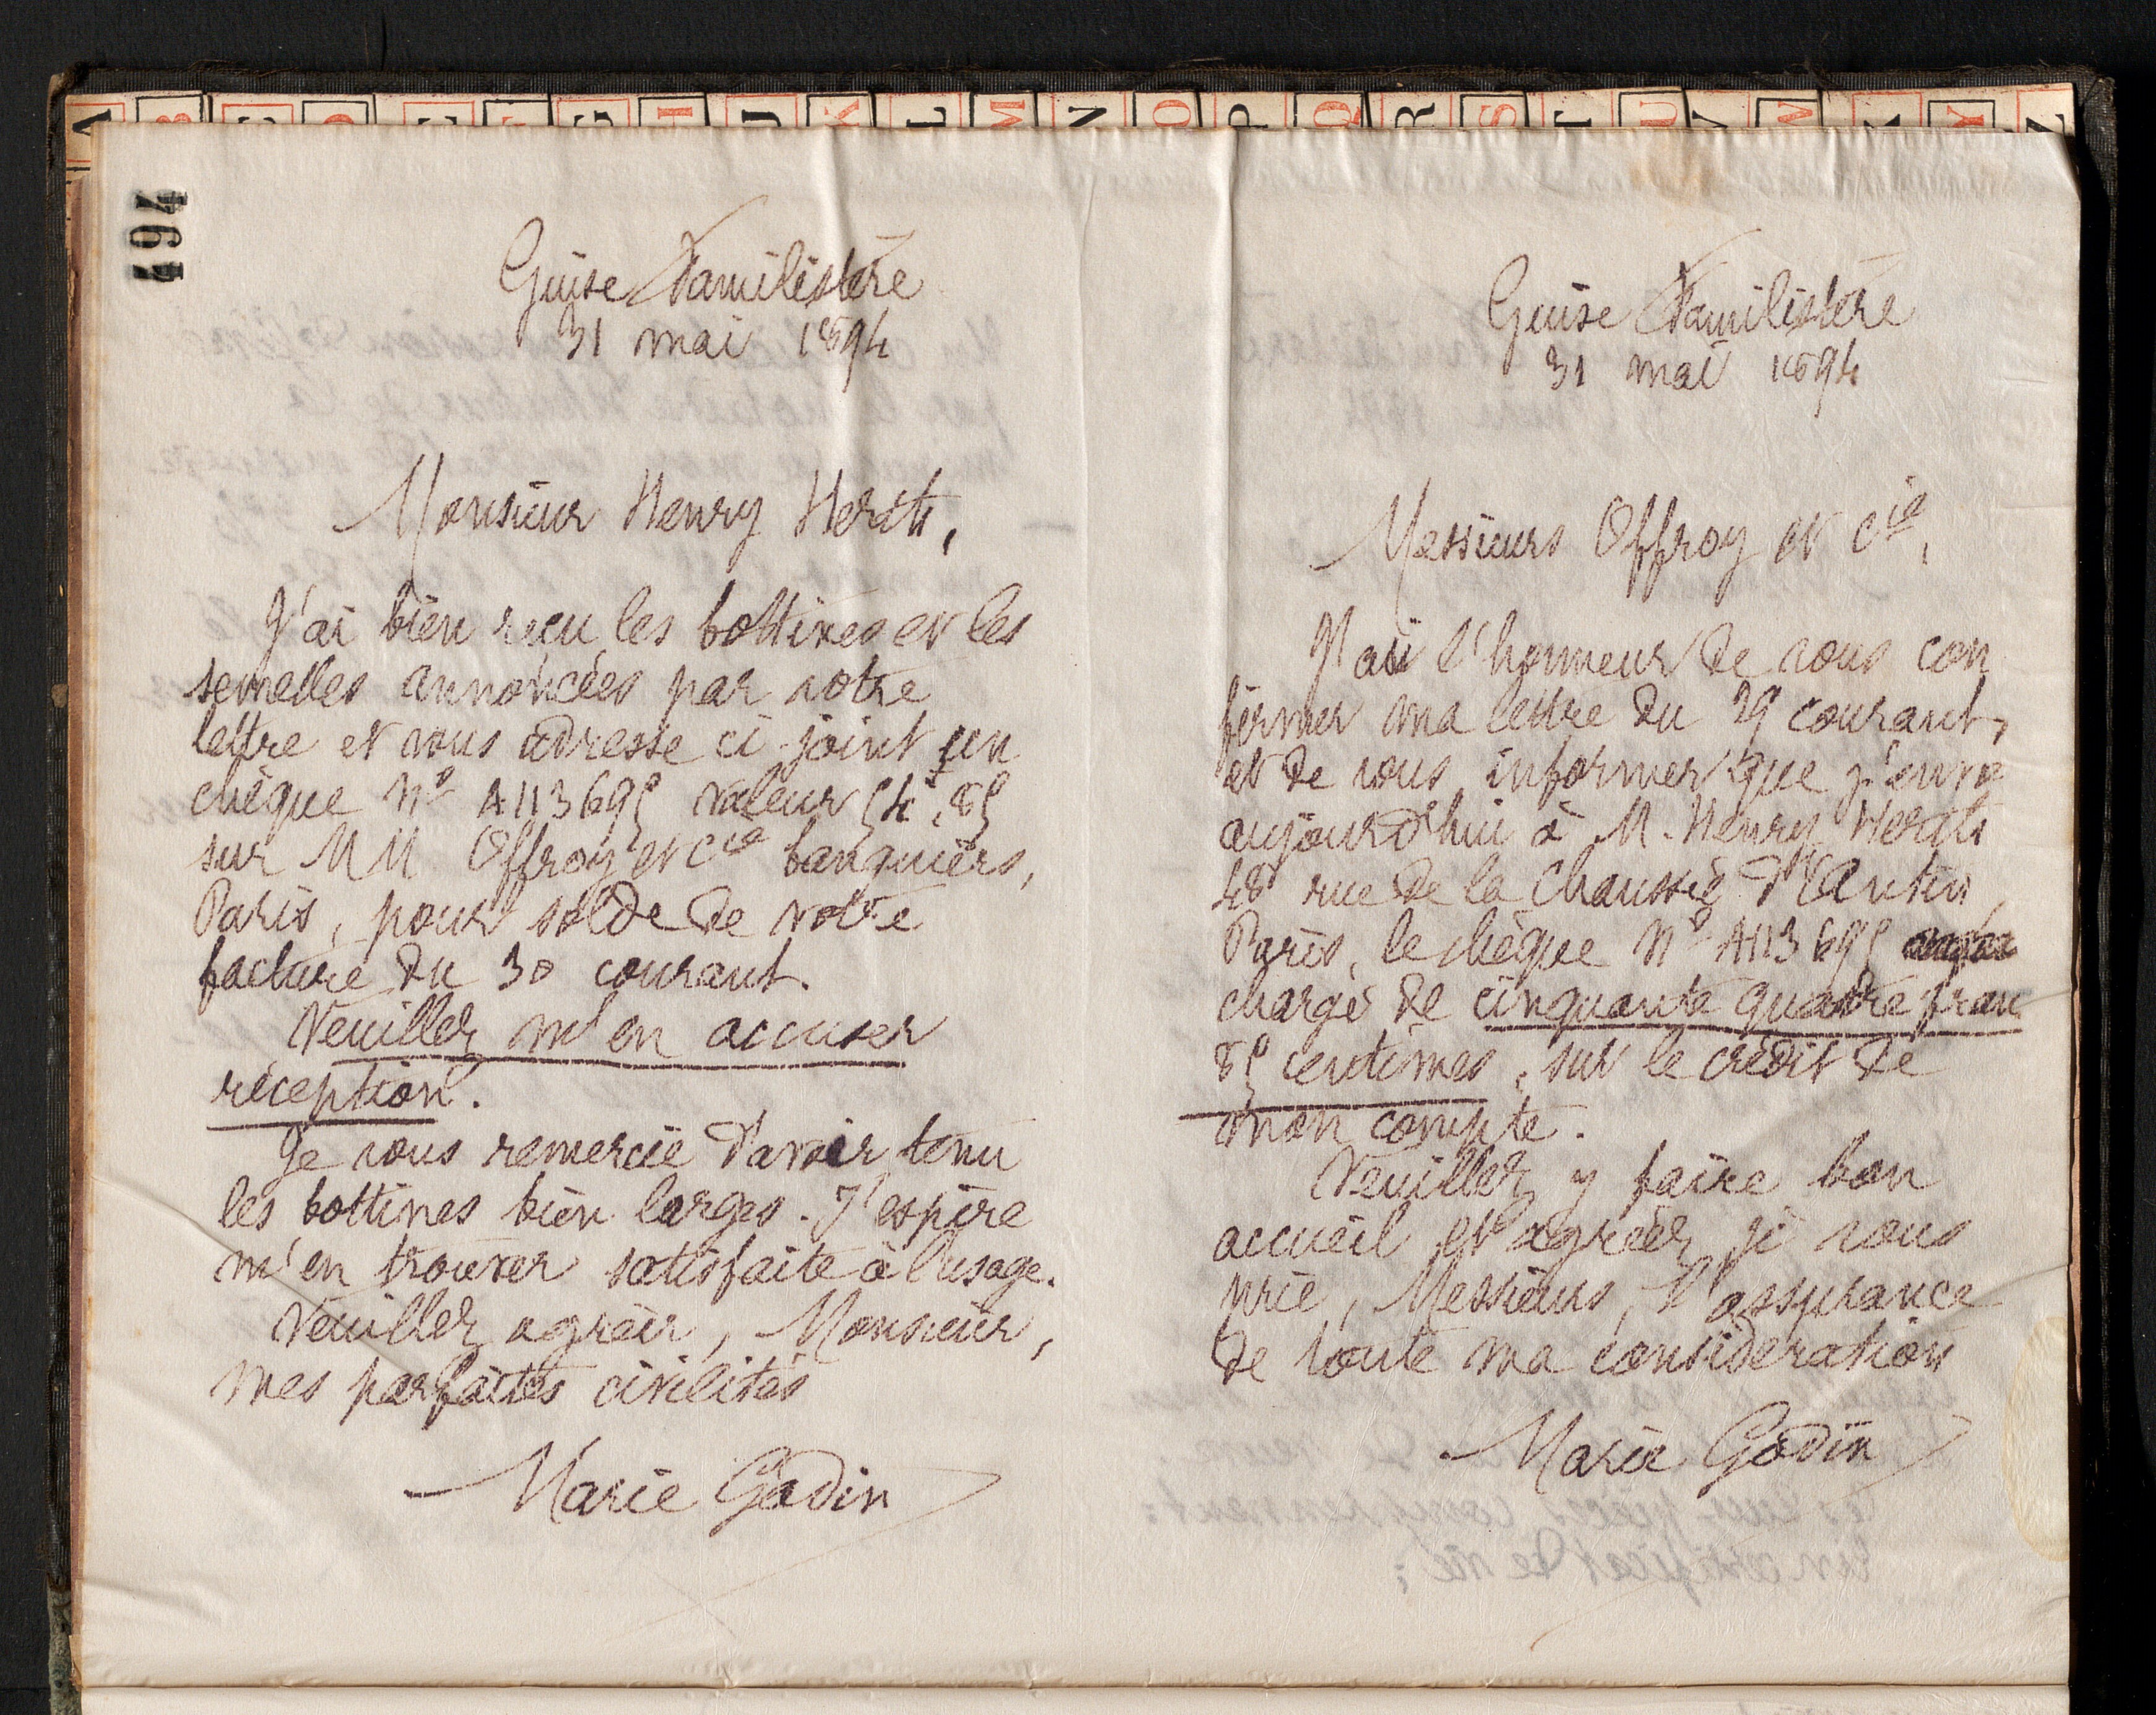 A B C D E F G H I J K L M N O P Q R S T U V W X Y Z
494
Guise Familistère
31 mai 1894
Monsieur Henry Herth,
J'ai bien reçu les bottines et les
semelles annoncées par votre
lettre et vous adresse ci-joint un
chèque No A113695 valeur 54f,85
sur MM Offroy et Cie banquiers,
Paris, pour solde de votre
facture du 30 courant.
Veuillez m'en accuser
réception.
Je vous remercie d'avoir tenu
les bottines bien larges. J'espère
m'en trouver satisfaite à l'usage.
Veuillez agréer, Monsieur,
mes parfaites civilités
Marie Godin
Guise Familistère
31 mai 1894
Messieurs Offroy et Cie,
J'ai l'honneur de vous con
firmer ma lettre du 29 courant,
et de vous informer que j'envoie
aujourd'hui à M. Henry Herth
48 rue de la Chaussée d'Antin,
Paris, le chèque No A113695
chargé de cinquante quatre fran
85 centimes, sur le crédit de
mon compte.
Veuillez y faire bon
accueil et agréer, je vous
prie, Messieurs, l'assurance
de toute ma considération
Marie Godin